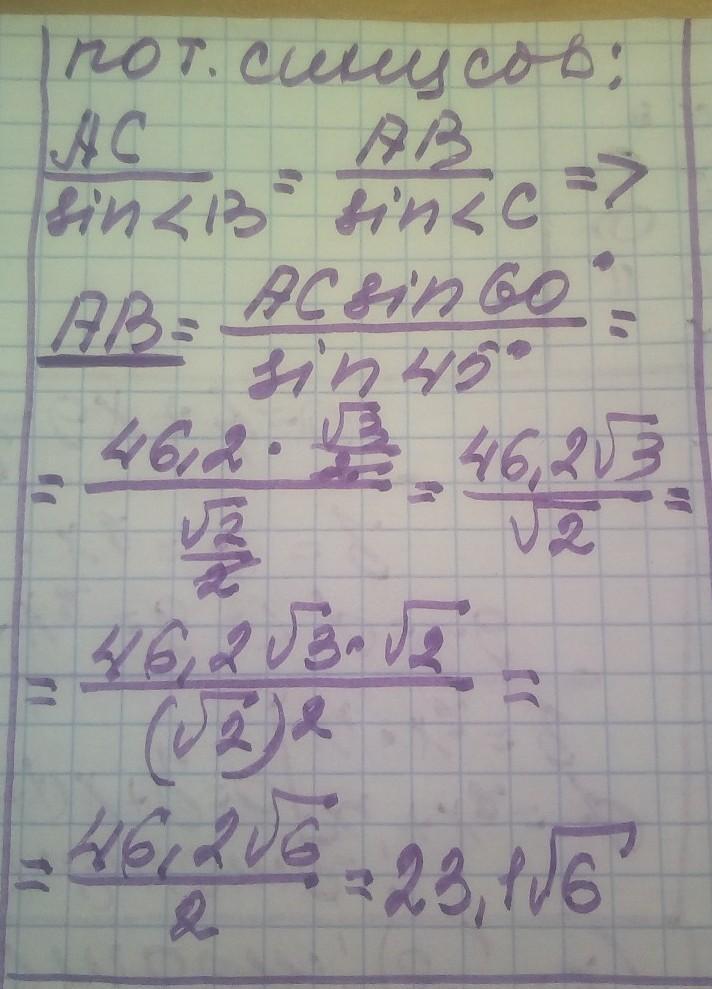 по т. синусов:
AC / sin<B = AB / sin<C =>
AB = AC sin 60° / sin 45° =
= 46,2 · √3/2 / √2/2 = 46,2√3 / √2 =
= 46,2√3 · √2 / (√2)² =
= 46,2√6 / 2 = 23,1√6